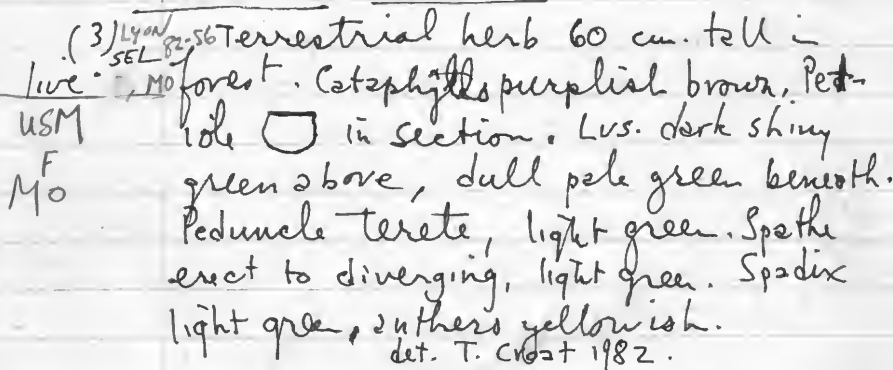 (3) Lyon SEL 82-56 Terrestrial herb 60 cm. tall in
live , MO forest. Cataphylls purplish brown, Pet-
USM iole in section. Lvs. dark shiny
F
MO green above, dull pale green beneath.
Peduncle terete, light green. Spathe
erect to diverging, light green. Spadix
light green, anthers yellowish.
det. T. Croat 1982.